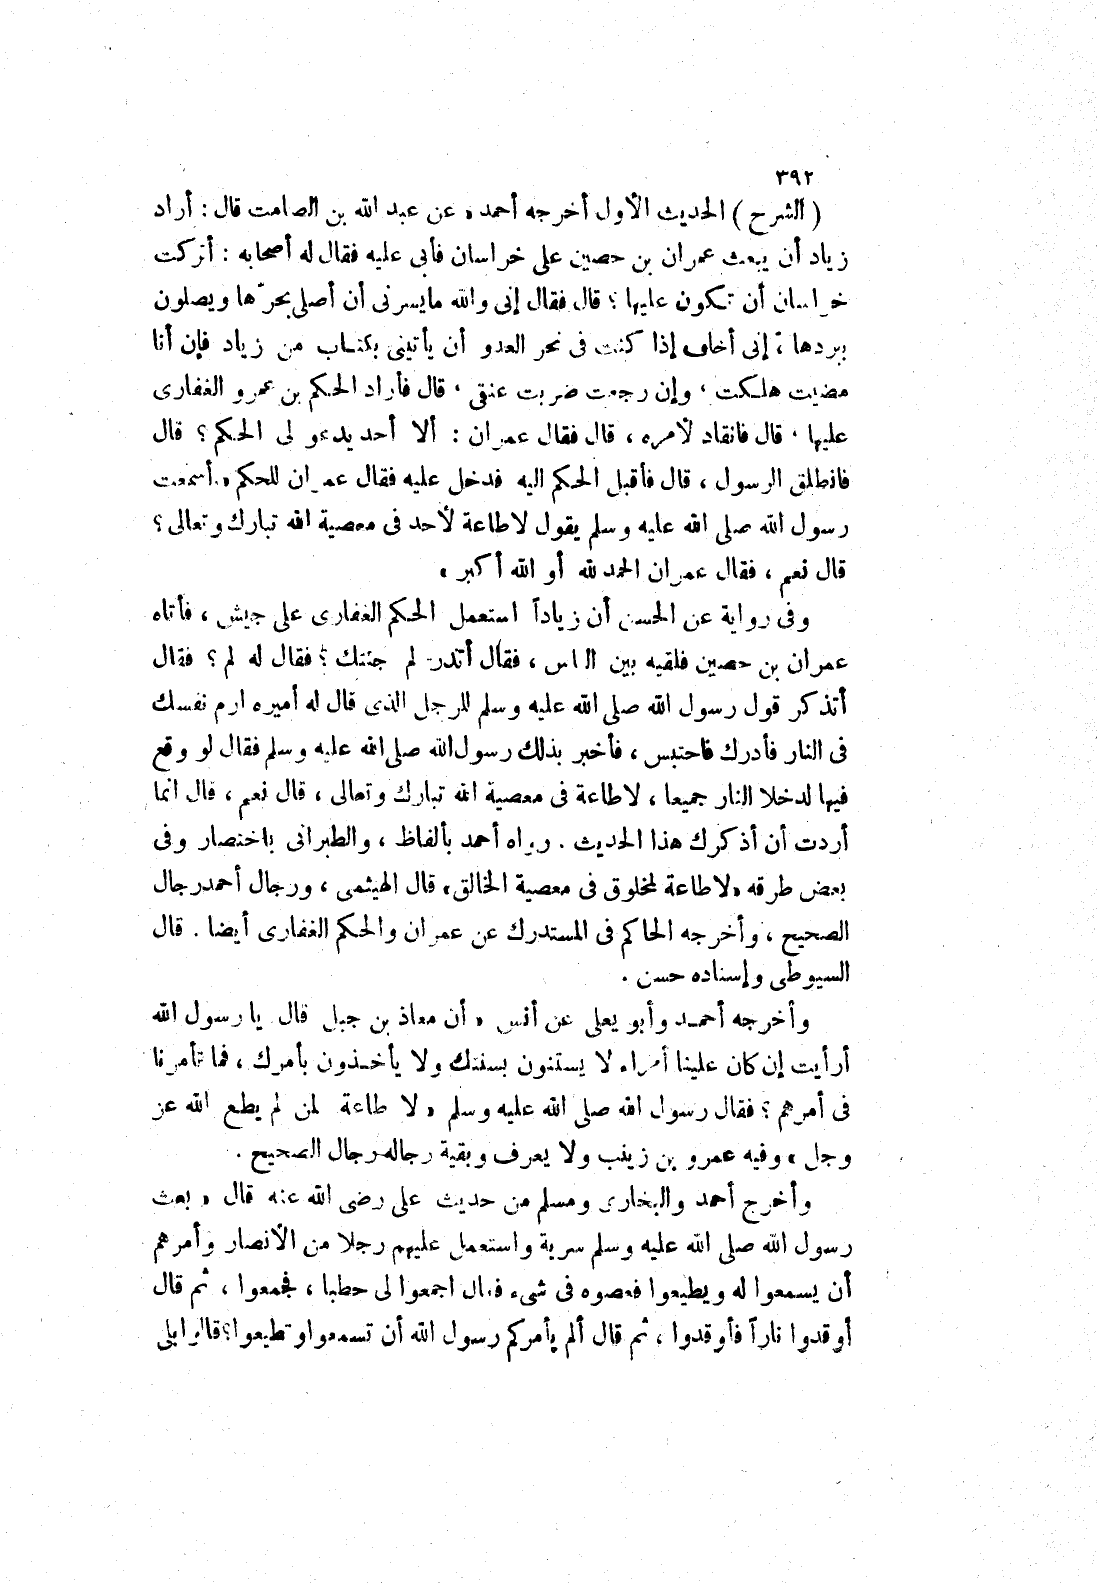 ٣٩٢
( الشرح ) الحديث الأول أخرجه أحمد « عن عبد الله بن الصامت قال : أراد
زياد أن يبعث عمران بن حصين على خراسان فأبى عليه فقال له أصحابه : أتركت
خراسان أن تكون عليها ؟ قال فقال إنى والله مايسرنى أن أصلى بحرّها ويصلون
ببردها ، إنى أخاف إذا كنت فى نحر العدو أن يأتينى بكتاب من زياد فإن أنا
مضيت هلكت ، وإن رجعت ضربت عنقى ، قال فأراد الحكم بن عمرو الغفارى
عليها ، قال فانقاد لأمره ، قال فقال عمران : ألا أحد يدعو لى الحكم ؟ قال
فانطلق الرسول ، قال فأقبل الحكم اليه فدخل عليه فقال عمران للحكم « أسمعت
رسول الله صلى الله عليه وسلم يقول لاطاعة لأحد فى معصية الله تبارك وتعالى ؟
قال نعم ، فقال عمران الحمد لله أو الله أكبر »
وفى رواية عن الحسن أن زياداً استعمل الحكم الغفارى على جيش ، فأتاه
عمران بن حصين فلقيه بين الناس ، فقال أتدرى لم جئتك ؟ فقال له لم ؟ فقال
أتذكر قول رسول الله صلى الله عليه وسلم للرجل الذى قال له أميره ارم نفسك
فى النار فأدرك فاحتبس ، فأخبر بذلك رسول الله صلى الله عليه وسلم فقال لو وقع
فيها لدخلا النار جميعا ، لاطاعة فى معصية الله تبارك وتعالى ، قال نعم ، قال انما
أردت أن أذكرك هذا الحديث . رواه أحمد بألفاظ ، والطبرانى باختصار وفى
بعض طرقه «لاطاعة لمخلوق فى معصية الخالق» قال الهيثمى ، ورجال أحمد رجال
الصحيح ، وأخرجه الحاكم فى المستدرك عن عمران والحكم الغفارى أيضا . قال
السيوطى وإسناده حسن .
وأخرجه أحمد وأبو يعلى عن أنس « أن معاذ بن جبل قال يا رسول الله
أرأيت إن كان علينا أمراء لا يستنون بسنتك ولا يأخذون بأمرك ، فما تأمرنا
فى أمرهم ؟ فقال رسول الله صلى الله عليه وسلم « لا طاعة لمن لم يطع الله عز
وجل » وفيه عمرو بن زينب ولا يعرف وبقية رجاله رجال الصحيح .
وأخرج أحمد والبخارى ومسلم من حديث على رضى الله عنه قال « بعث
رسول الله صلى الله عليه وسلم سرية واستعمل عليهم رجلا من الأنصار وأمرهم
أن يسمعوا له ويطيعوا فعصوه فى شىء فقال اجمعوا لى حطبا ، فجمعوا ، ثم قال
أوقدوا ناراً فأوقدوا ، ثم قال ألم يأمركم رسول الله أن تسمعوا وتطيعوا ؟ قالوا بلى